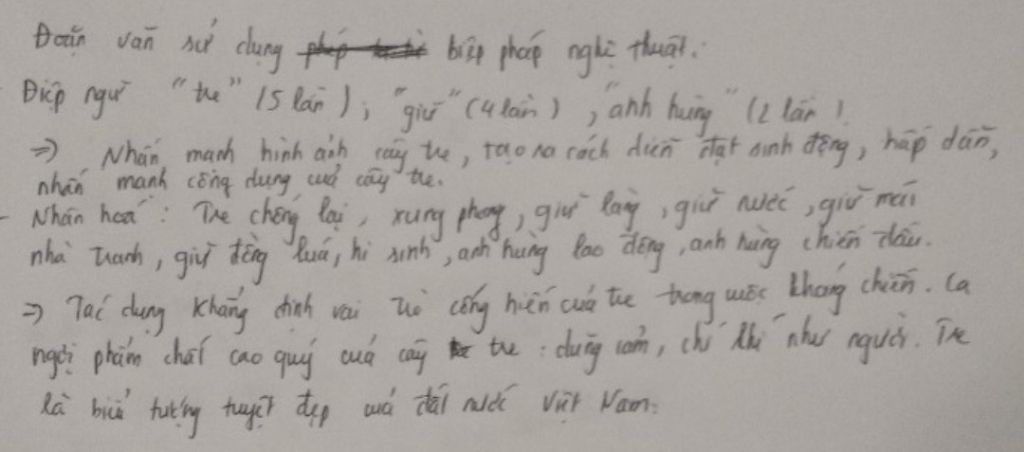 Đoạn văn sử dụng biện pháp nghệ thuật:
Điệp ngữ "tre" (5 lần), "giữ" (4 lần), "anh hùng" (2 lần).
=> Nhấn mạnh hình ảnh cây tre, tạo ra cách diễn đạt sinh động, hấp dẫn,
nhấn mạnh công dụng của cây tre.
- Nhân hoá: Tre chống lại, xung phong, giữ làng, giữ nước, giữ mái
nhà tranh, giữ đồng lúa, hi sinh, anh hùng lao động, anh hùng chiến đấu.
=> Tác dụng khẳng định vai trò cống hiến của tre trong cuộc kháng chiến. Ca
ngợi phẩm chất cao quý của cây tre: dũng cảm, chí khí như người. Tre
là biểu tượng tuyệt đẹp của đất nước Việt Nam.